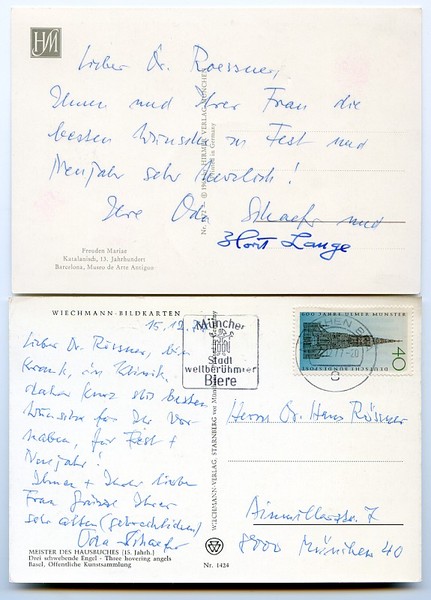 HM
Lieber Dr. Roessner,
Ihnen und Ihrer Frau die
besten Wünsche zu Fest und
Neujahr sehr herzlich!
Ihre Oda Schaefer und
Horst Lange
HIRMER VERLAG MÜNCHEN
Printed in Germany
Freuden Mariae
Katalanisch, 13. Jahrhundert
Barcelona, Museo de Arte Antiguo
WIECHMANN-BILDKARTEN
15.12.77
Münchner
Stadt
weltberühmter
Biere
600 JAHRE ULMER MÜNSTER
DEUTSCHE BUNDESPOST
40
Lieber Dr. Rössner, bin
krank, in Klinik,
daher kurz die besten
Wünsche für Ihr Vor-
haben, für Fest +
Neujahr!
Ihnen + Ihrer lieben
Frau Grüsse Ihrer
sehr alten (gebrechlichen)
Oda Schaefer
Herrn Dr. Hans Rössner
Ainmillerstr. 7
8000 München 40
WIECHMANN-VERLAG, STARNBERG
MEISTER DES HAUSBUCHES (15. Jahrh.)
Drei schwebende Engel - Three hovering angels
Basel, Öffentliche Kunstsammlung
Nr. 1424